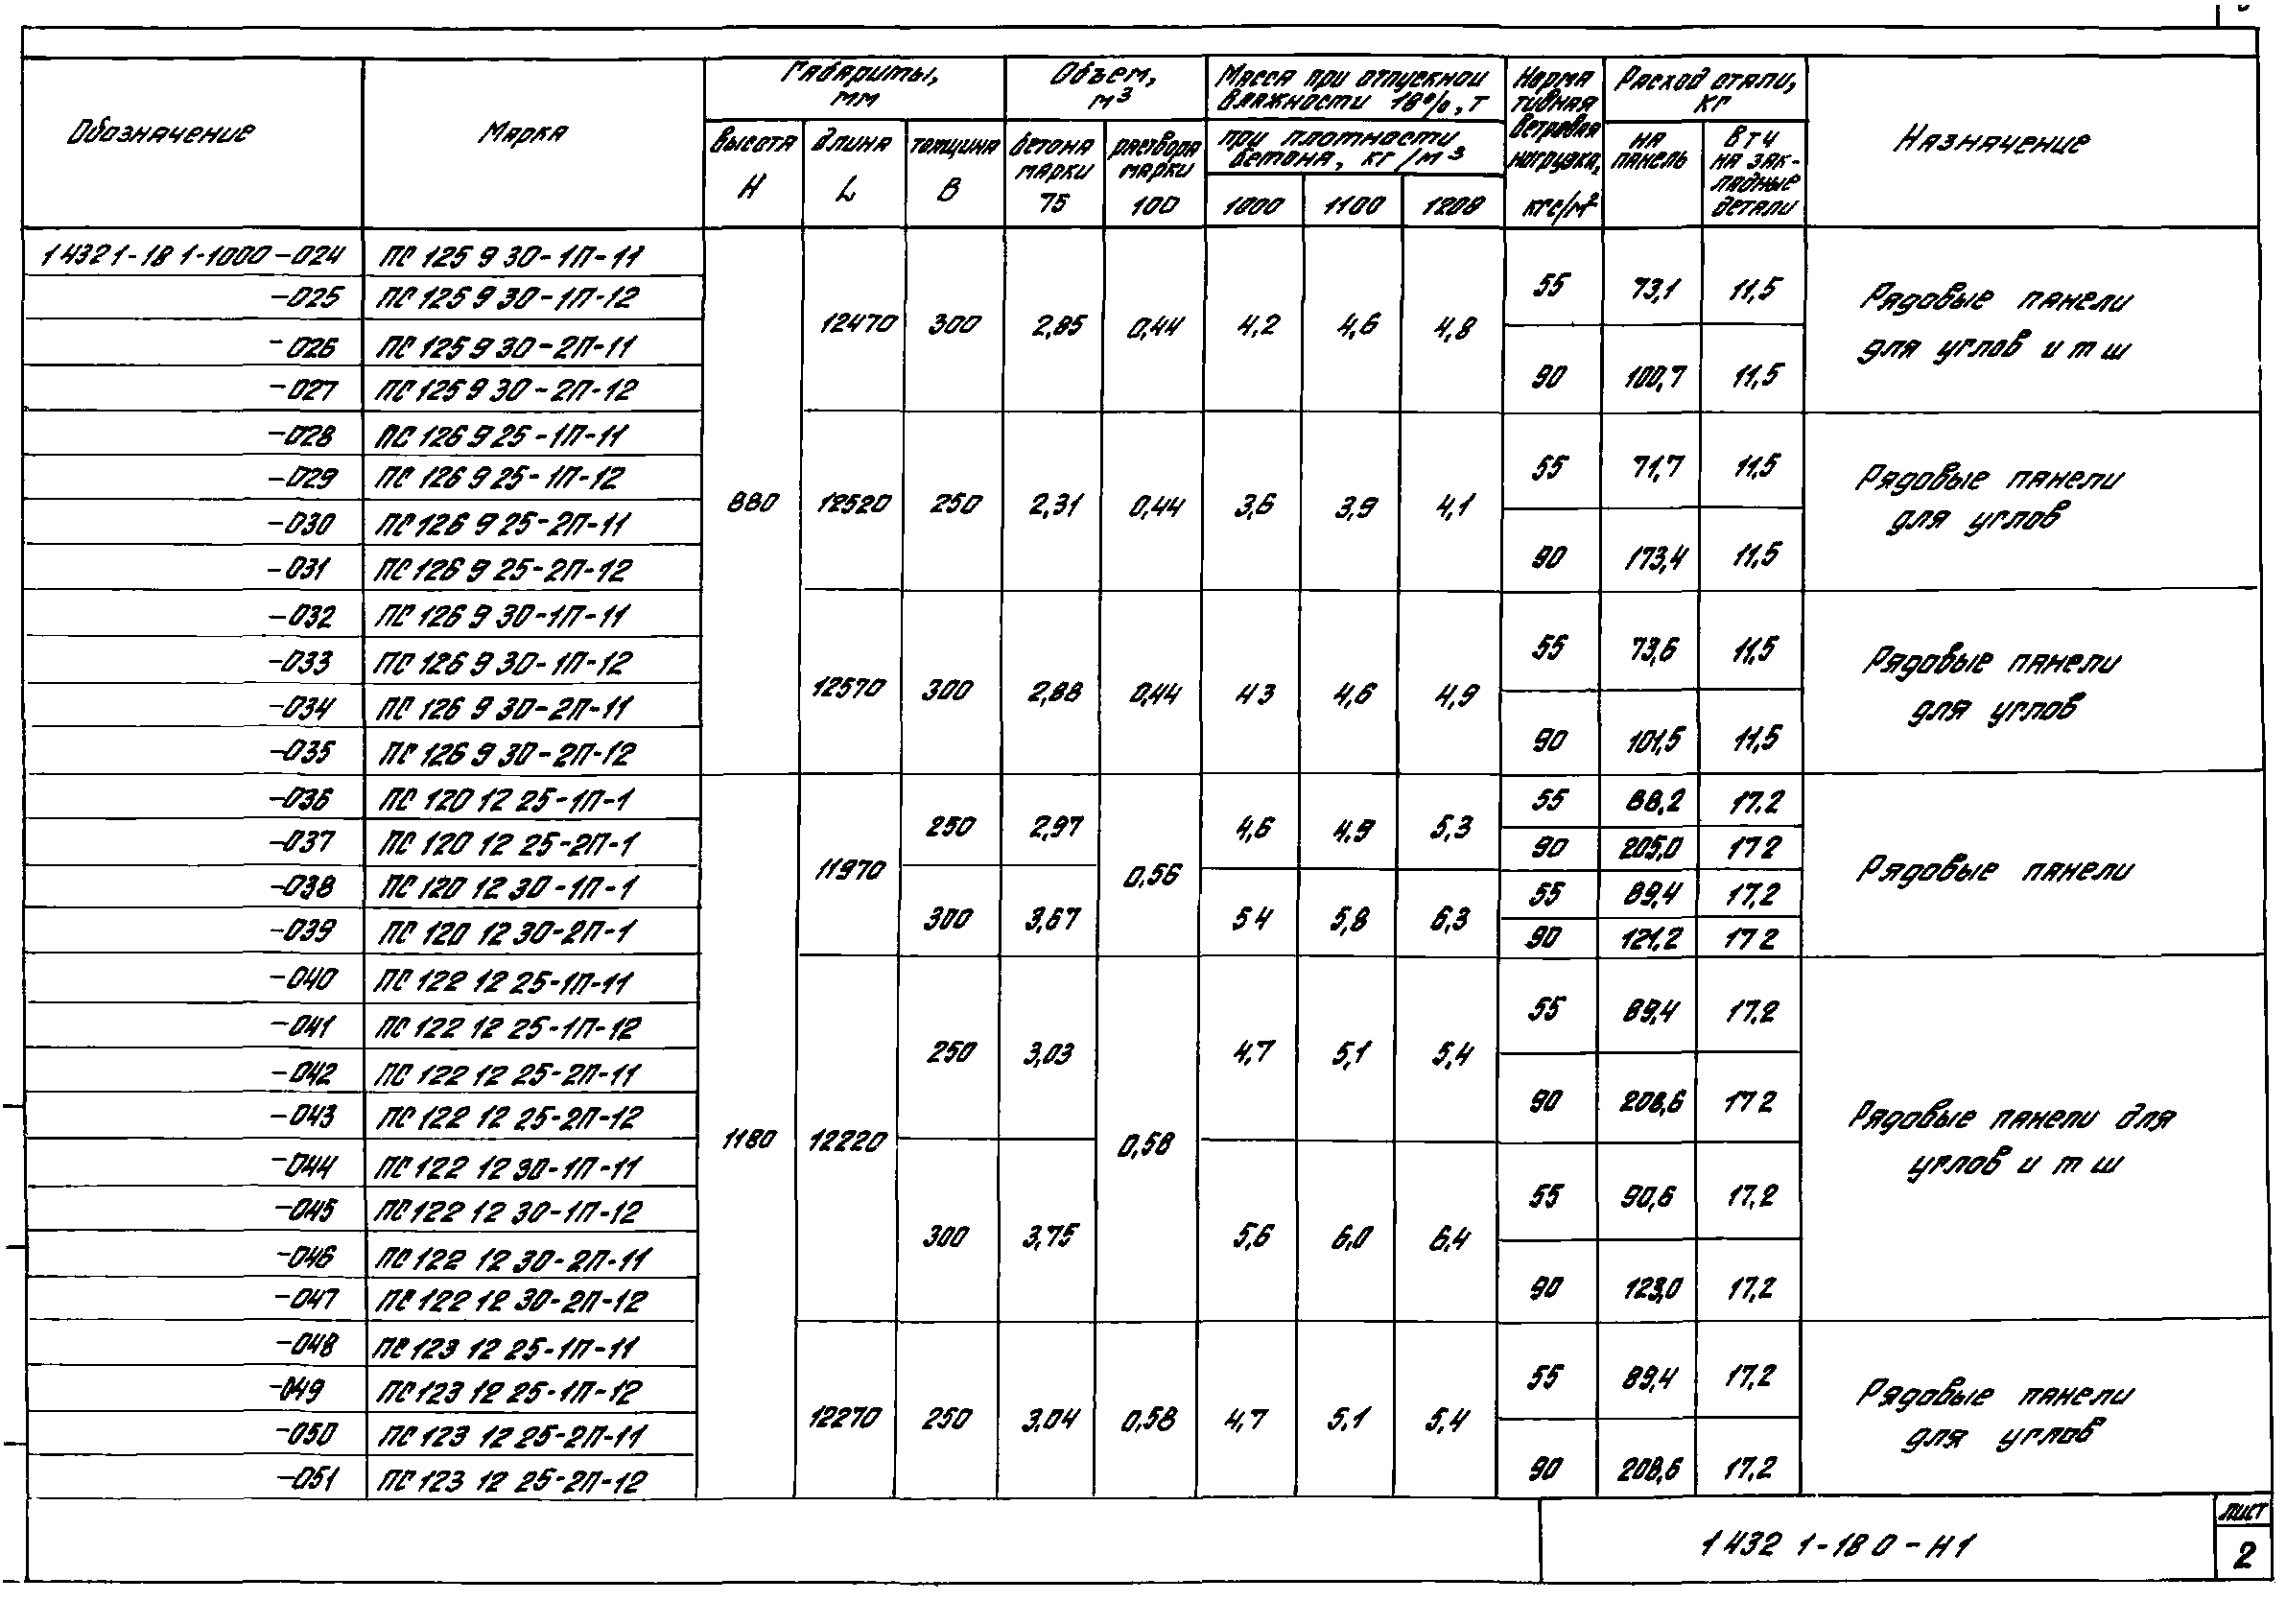 Обозначение
Марка
Габариты, мм
высота H
длина L
толщина B
Объем, м³
бетона марки 75
раствора марки 100
Масса при отпускной влажности 18%, т
при плотности бетона, кг/м³
1000 1100 1200
Нормативная ветровая нагрузка, кгс/м²
Расход стали, кг
на панель
в т ч на закладные детали
Назначение
1 432 1-18 1-1000 -024 ПС 125 9 30-1П-11
-025 ПС 125 9 30-1П-12
-026 ПС 125 9 30-2П-11
-027 ПС 125 9 30-2П-12
12470 300 2,85 0,44 4,2 4,6 4,8
55 73,1 11,5
90 100,7 11,5
Рядовые панели
для углов и т ш
-028 ПС 126 9 25-1П-11
-029 ПС 126 9 25-1П-12
-030 ПС 126 9 25-2П-11
-031 ПС 126 9 25-2П-12
880 12520 250 2,31 0,44 3,6 3,9 4,1
55 71,7 11,5
90 173,4 11,5
Рядовые панели
для углов
-032 ПС 126 9 30-1П-11
-033 ПС 126 9 30-1П-12
-034 ПС 126 9 30-2П-11
-035 ПС 126 9 30-2П-12
12570 300 2,88 0,44 4 3 4,6 4,9
55 73,6 11,5
90 101,5 11,5
Рядовые панели
для углов
-036 ПС 120 12 25-1П-1
-037 ПС 120 12 25-2П-1
-038 ПС 120 12 30-1П-1
-039 ПС 120 12 30-2П-1
11970 0,56
250 2,97 4,6 4,9 5,3
55 88,2 17.2
90 205,0 17 2
300 3,67 5 4 5,8 6,3
55 89,4 17,2
90 121,2 17 2
Рядовые панели
-040 ПС 122 12 25-1П-11
-041 ПС 122 12 25-1П-12
-042 ПС 122 12 25-2П-11
-043 ПС 122 12 25-2П-12
-044 ПС 122 12 30-1П-11
-045 ПС 122 12 30-1П-12
-046 ПС 122 12 30-2П-11
-047 ПС 122 12 30-2П-12
1180 12220 0,58
250 3,03 4,7 5,1 5,4
55 89,4 17,2
90 208,6 17 2
300 3,75 5,6 6,0 6,4
55 90,6 17,2
90 123,0 17,2
Рядовые панели для
углов и т ш
-048 ПС 123 12 25-1П-11
-049 ПС 123 12 25-1П-12
-050 ПС 123 12 25-2П-11
-051 ПС 123 12 25-2П-12
12270 250 3,04 0,58 4,7 5,1 5,4
55 89,4 17,2
90 208,6 17,2
Рядовые панели
для углов
1 432 1-18 0-Н1
лист
2